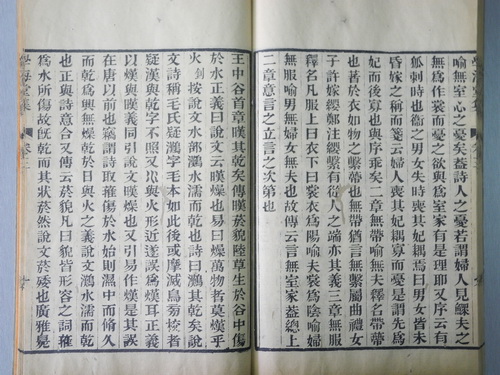 喻無室心之憂矣葢詩人之憂若謂婦人見鰥夫之
無爲作裳而憂之欲與爲室家有是理耶又序云有
狐刺時也衞之男女失時喪其妃耦焉曰男女皆未
昏嫁之稱而箋云婦人喪其妃耦寡而憂是謂先爲
妃而後寡也與序乖矣二章無帶無夫釋名帶蔕
也著於衣如物之繫蔕也無帶猶言無繫屬曲禮女
子許嫁纓鄭注纓繫有從人之端亦其義三章無服
釋名凡服上曰衣下曰裳衣爲陽喻夫裳爲陰喻婦
無服喻男無婦女無夫也故傳云言無室家葢總上
二章意言之立言之次第也
王中谷首章暵其乾矣傳暵菸貌陸草生於谷中傷
於水正義曰說文云暵燥也易曰燥萬物者莫熯乎
火釗按說文水部灘水濡而乾也詩曰灘其乾矣說
文詩稱毛氏疑灘字毛本如此後或摩滅鳥旁校者
疑漢與乾字不照又與火形近遂誤爲熯耳正義
以熯與暵義同引說文暵燥也又引易作熯是其誤
在唐以前也竊謂詩取蓷傷於水始則濕中而脩久
而乾爲與無燥乾於日與火之義說文灘水濡而乾
也正與詩意合又傳云菸貌凡曰貌皆形容之詞蓷
爲水所傷故旣乾而其狀菸然說文菸矮也廣雅
學海堂集 卷二